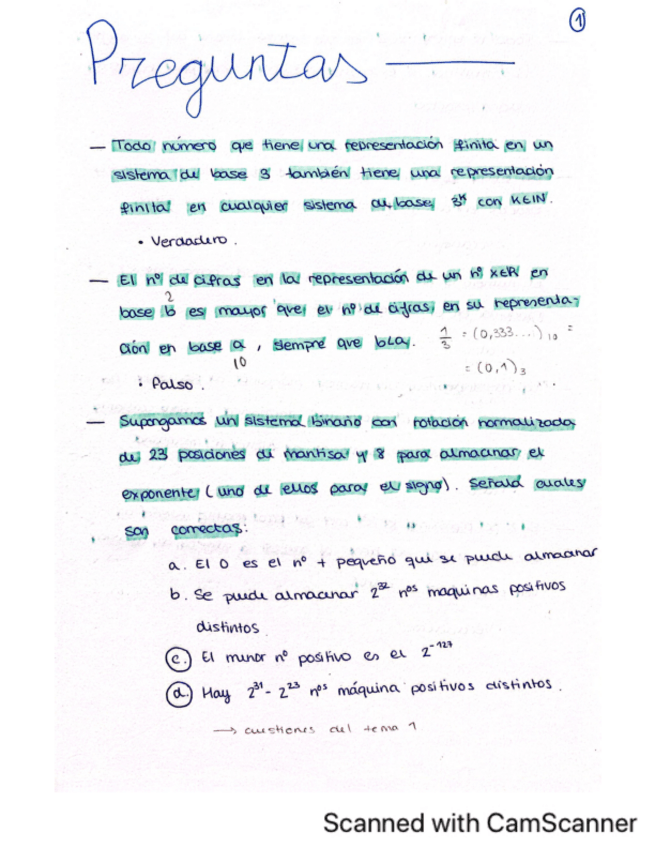 ①
Preguntas
— Todo número que tiene una representación finita en un
sistema de base 3 también tiene una representación
finita en cualquier sistema de base 3ᴷ con K∈IN.
• Verdadero.
— El nº de cifras en la representación de un nº x∈R en
base b es mayor que el nº de cifras en su representa-
2
ción en base a, siempre que b<a. 1/3 = (0,333...)₁₀ =
10
= (0,1)₃
• Falso.
— Supongamos un sistema binario con notación normalizada,
de 23 posiciones de mantisa y 8 para almacenar el
exponente (uno de ellos para el signo). Señala cuales
son correctas:
a. El 0 es el nº + pequeño que se puede almacenar
b. Se puede almacenar 2³² nᵒˢ maquinas positivos
distintos
c. El menor nº positivo es el 2⁻¹²⁷
d. Hay 2³¹ - 2²³ nᵒˢ máquina positivos distintos.
→ cuestiones del tema 1
Scanned with CamScanner